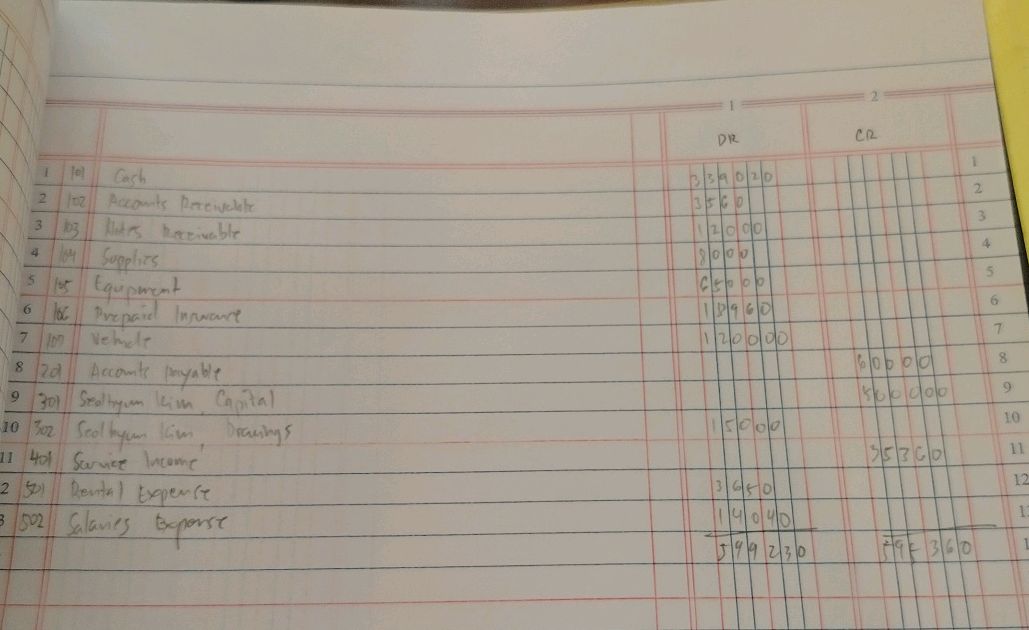 1 2
DR CR
1 101 Cash 339020 1
2 102 Accounts Receivable 3560 2
3 103 Notes Receivable 12000 3
4 104 Supplies 8000 4
5 105 Equipment 65000 5
6 106 Prepaid Insurance 18960 6
7 Vehicle 120000 7
8 201 Accounts payable 60000 8
9 301 Seolhyun Kim, Capital 500000 9
10 302 Seolhyun Kim, Drawings 15000 10
11 401 Service Income 35360 11
2 501 Rental Expense 3650 12
3 502 Salaries Expense 14040 1
599230 595360 1